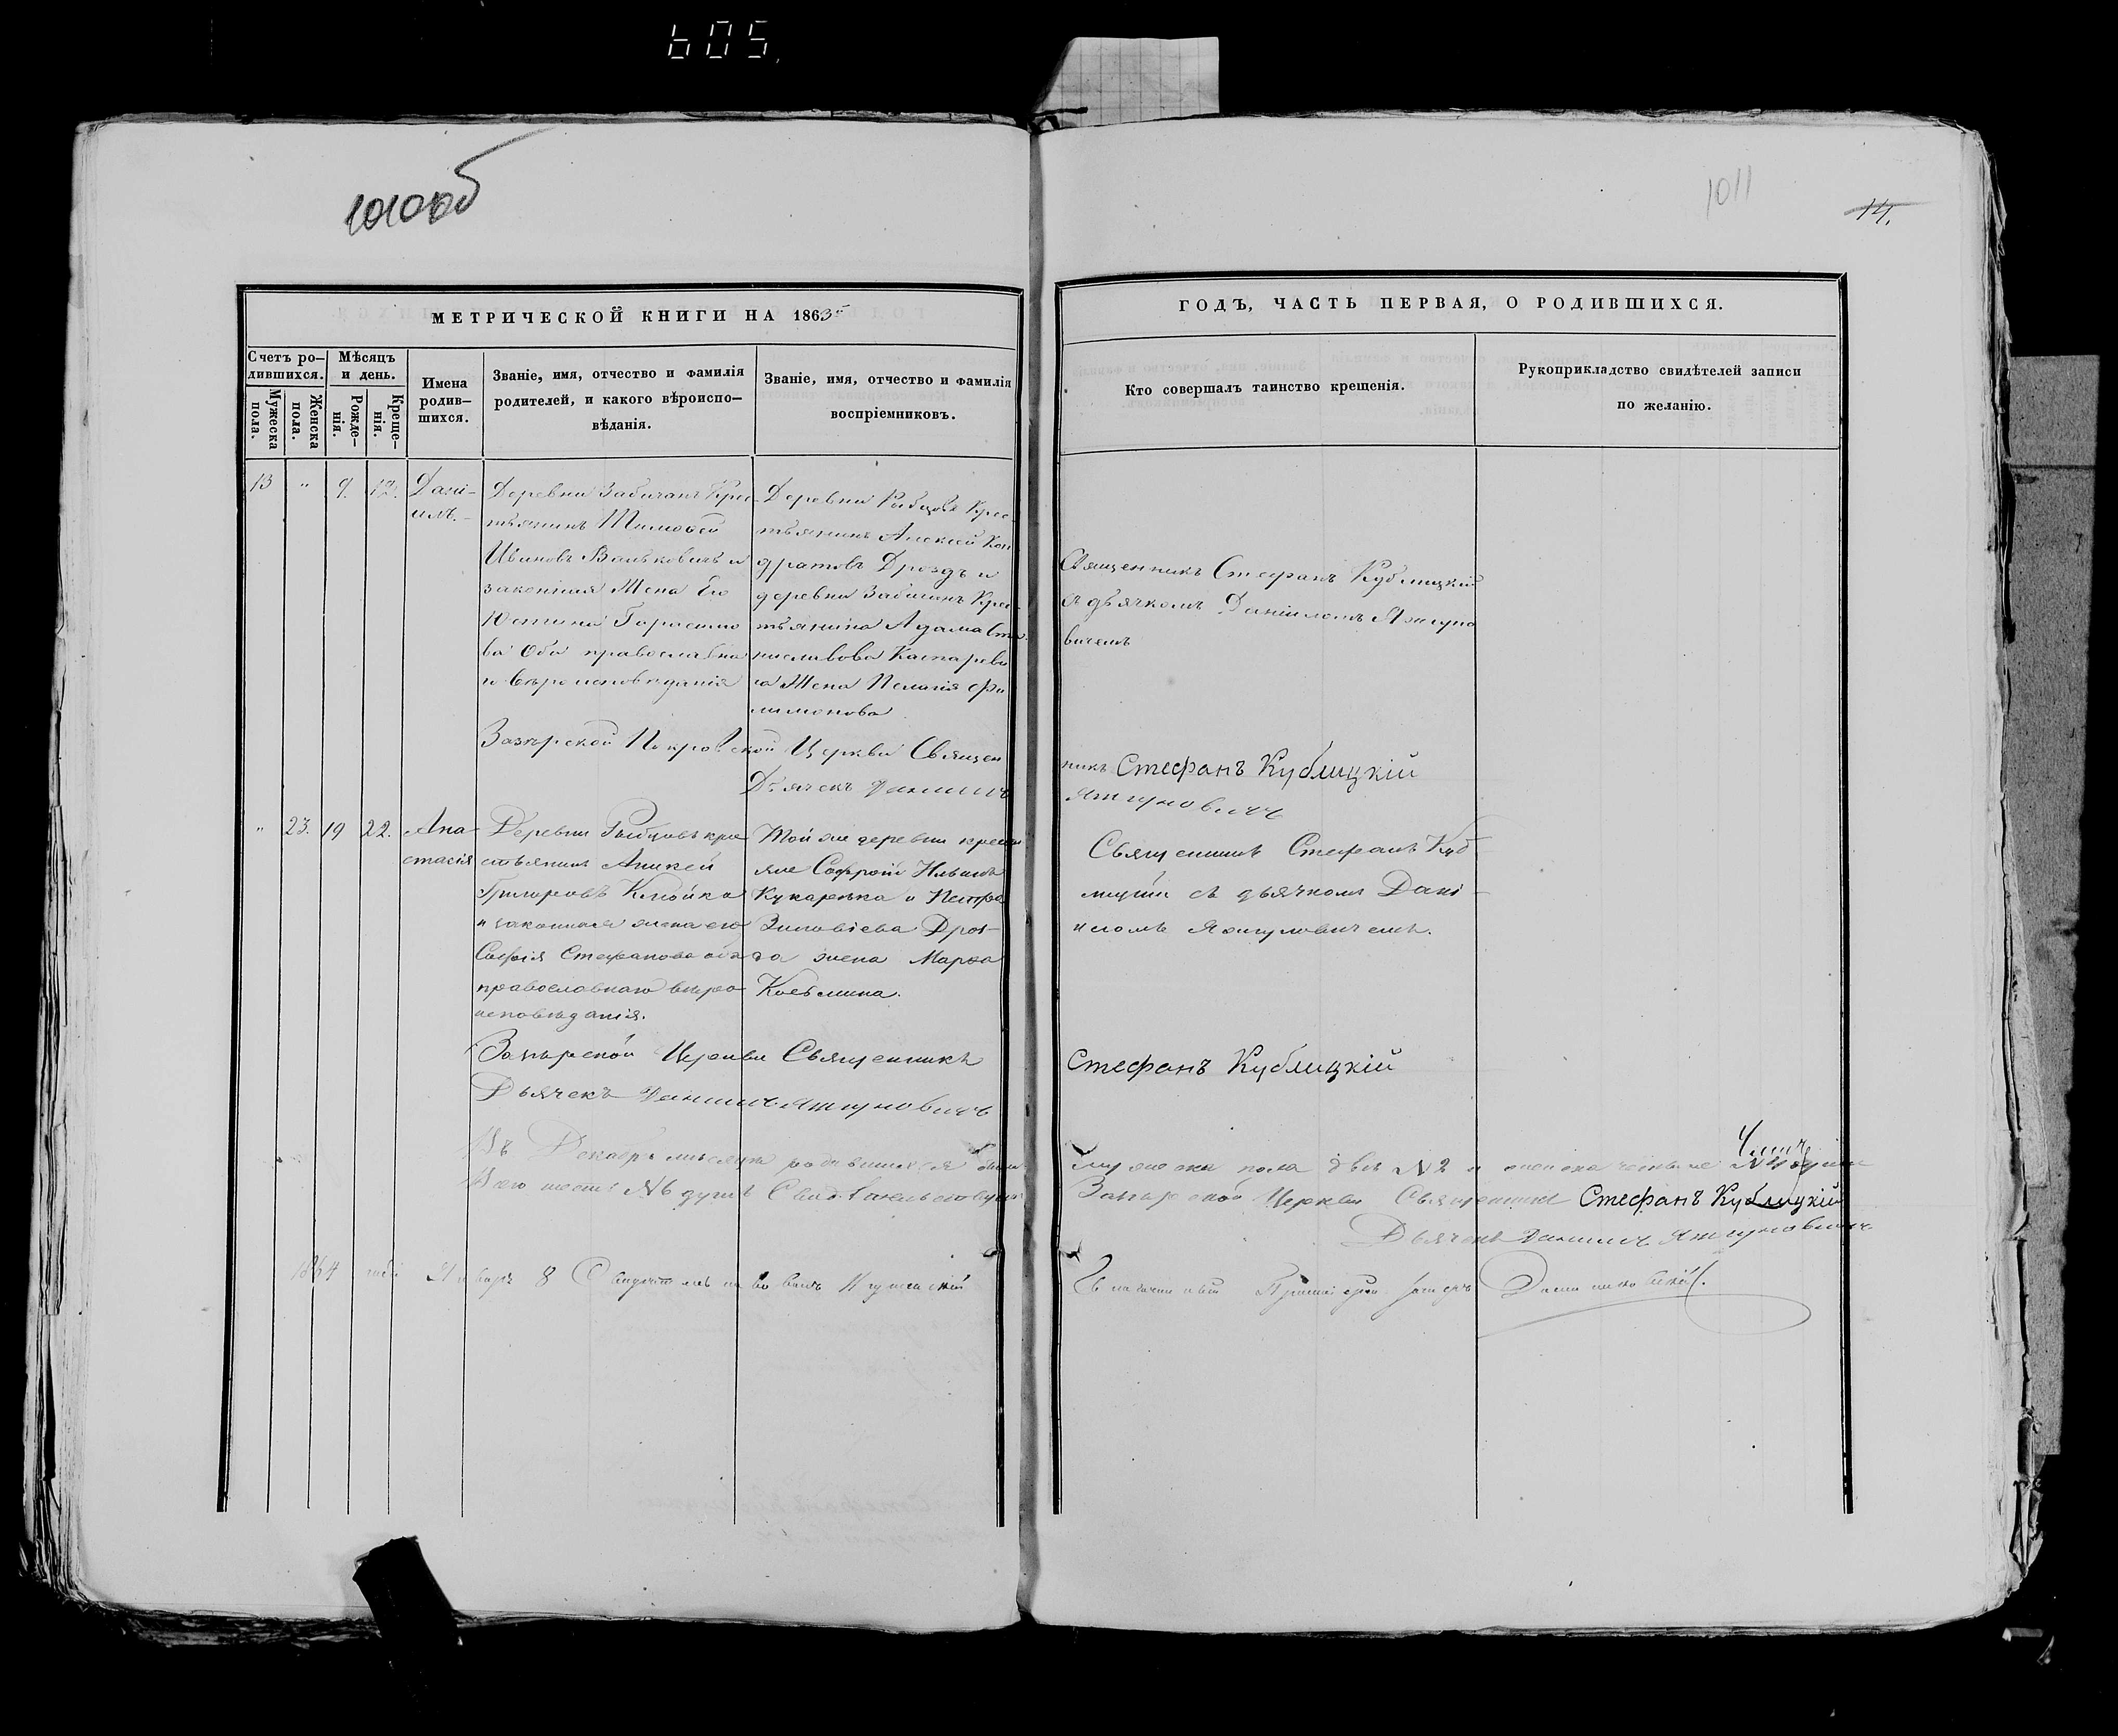 605
1010об
1011
14.
МЕТРИЧЕСКОЙ КНИГИ НА 1863й
ГОДЪ, ЧАСТЬ ПЕРВАЯ, О РОДИВШИХСЯ.
Счетъ ро-
дившихся.
Мужеска
пола.
Женска
пола.
Мѣсяцъ
и день.
Рожде-
нія.
Креще-
нія.
Имена
родив-
шихся.
Званіе, имя, отчество и фамилія
родителей, и какого вѣроиспо-
вѣданія.
Званіе, имя, отчество и фамилія
воспріемниковъ.
Кто совершалъ таинство крещенія.
Рукоприкладство свидѣтелей записи
по желанію.
13 " 9. 12.
Дані-
илъ.
Деревни Забичанъ Крес
тьянинъ Тимофей
ИвановъВаньковичъ и
законная Жена Его
Юстина Герасимо
ва Оба православна
го вѣроисповѣданія
Деревни Рыбцовъ Крес-
тьянинъ Алексей Кон
дратовъ Дроздъ и
деревни Забичанъ Крес-
тьянина Адама Ста-
ниславова Каспарови
ча Жена Пелагія Фи
лимонова
Священникъ Стефанъ Кублицкій
съ дьячкомъ Даніиломъ Яжгуно
вичемъ
Зазѣрской Покровской Церкви Священ
никъ Стефанъ Кублицкій
Дьячекъ Даніилъ
Яжгуновичъ
" 23. 19 22.
Ана-
стасія
Деревни Рыбцовъ кре-
стьянинъ Аникей
Григоровъ Клюйко
и законная жена его
Софія Стефанова оба
православнаго вѣро-
исповѣданія.
Той же деревни крестья
яне Софроній Ильинъ
Кукарека и Петра
Зиновіева Дроз-
да жена Марѳа
Козьмина.
Священникъ Стефанъ Куб-
лицкій съ дьячкомъ Дані-
иломъ Яжгуновичемъ.
Зазѣрской Церкви Священникъ
Стефанъ Кублицкій
Дьячекъ Даніилъ Яжгуновичъ
Въ Декабрѣ мѣсяцѣ родившихся было
мужеска пола двѣ №2 и женска четыре №4 души
Всего шесть №6 душъ
Зазѣрской Церкви Священникъ Стефанъ Кублицкій
Дьячекъ Даніилъ Яжгуновичъ
1864 года Января 8